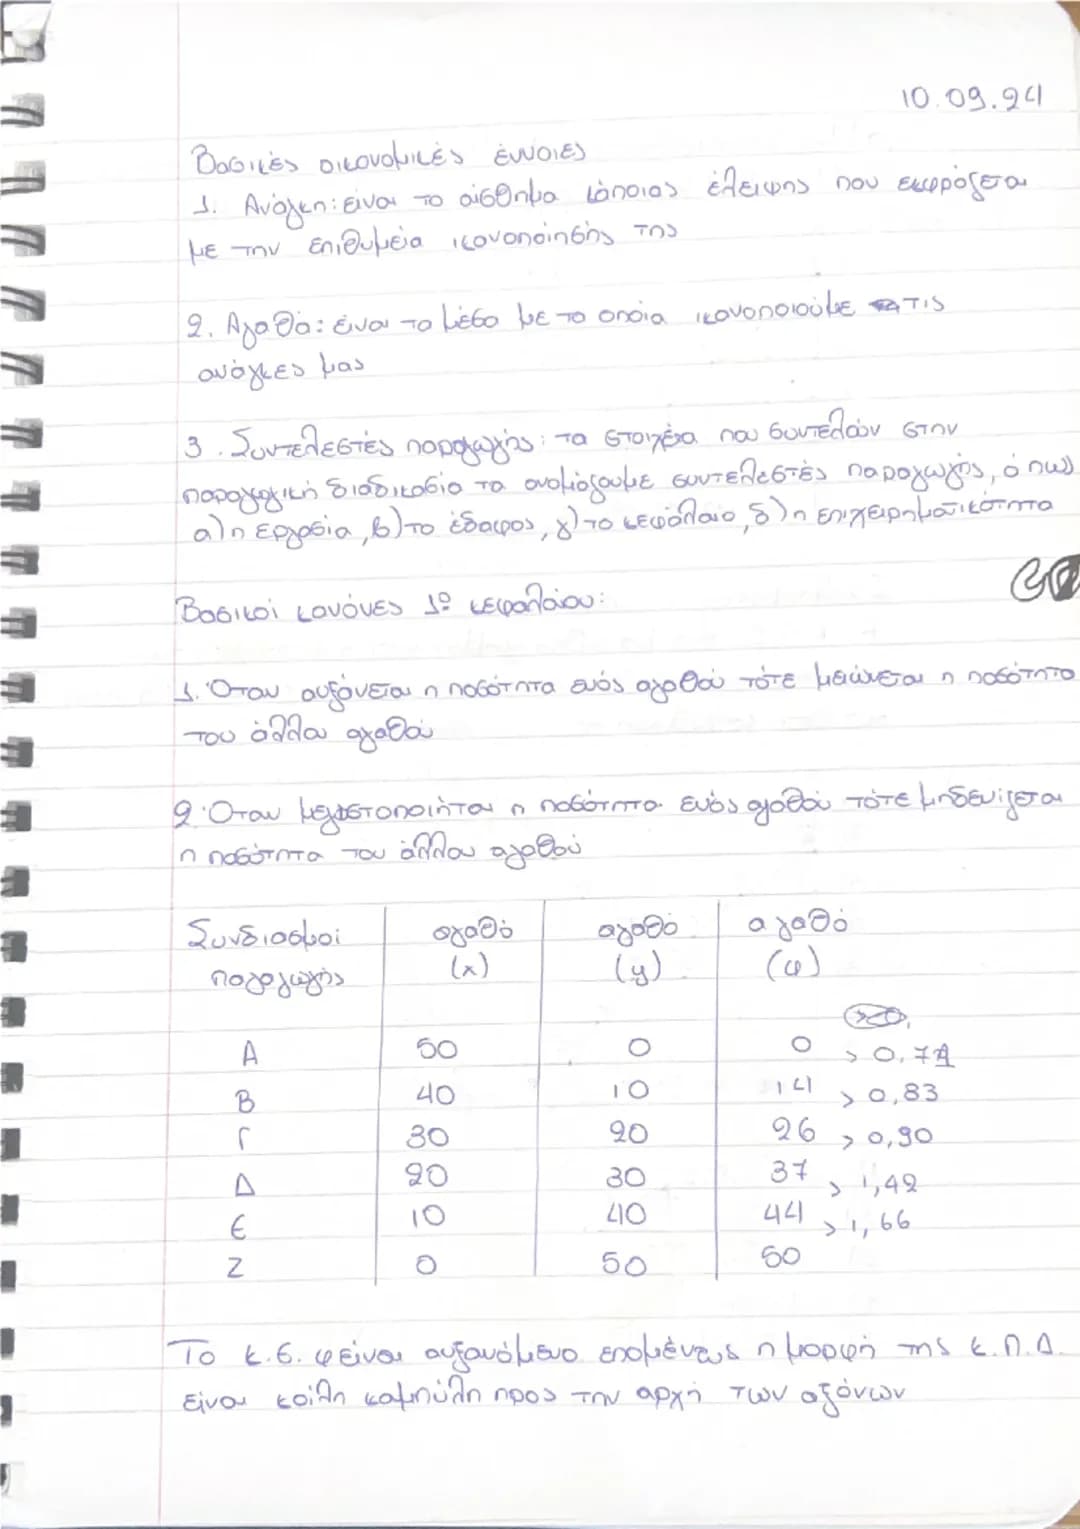 10.09.24
Βασικές οικονομικές έννοιες
1. Ανάγκη: είναι το αίσθημα κάποιας έλειψης που εκφράζεται
με την επιθυμεία ικανοποίησής της
2. Αγαθά: είναι τα μέσα με τα οποία ικανοποιούμε τις
ανάγκες μας
3. Συντελεστές παραγωγής: τα στοιχέια που συντελούν στην
παραγωγική διαδικασία τα ονομάζουμε συντελεστές παραγωγής, όπως
α) η εργασία, β) το έδαφος, γ) το κεφάλαιο, δ) η επιχειρηματικότητα
Βασικοί κανόνες 1º κεφαλαίου:
1. Όταν αυξάνεται η ποσότητα ενός αγαθού τότε μειώνεται η ποσότητα
του άλλου αγαθού
2. Όταν μεγιστοποιήται η ποσότητα ενός αγαθού τότε μηδενίζεται
η ποσότητα του άλλου αγαθού
Συνδιασμοί αγαθό αγαθό αγαθό
παραγωγής (x) (y) (φ)
Α 50 0 0 > 0,71
Β 40 10 14 > 0,83
Γ 30 20 26 > 0,90
Δ 20 30 37 > 1,42
Ε 10 40 44 > 1,66
Ζ 0 50 50
Το κ.ε. φ είναι αυξανόμενο επομένως η μορφή της κ.π.δ.
είναι κοίλη καμπύλη προς την αρχή των αξόνων